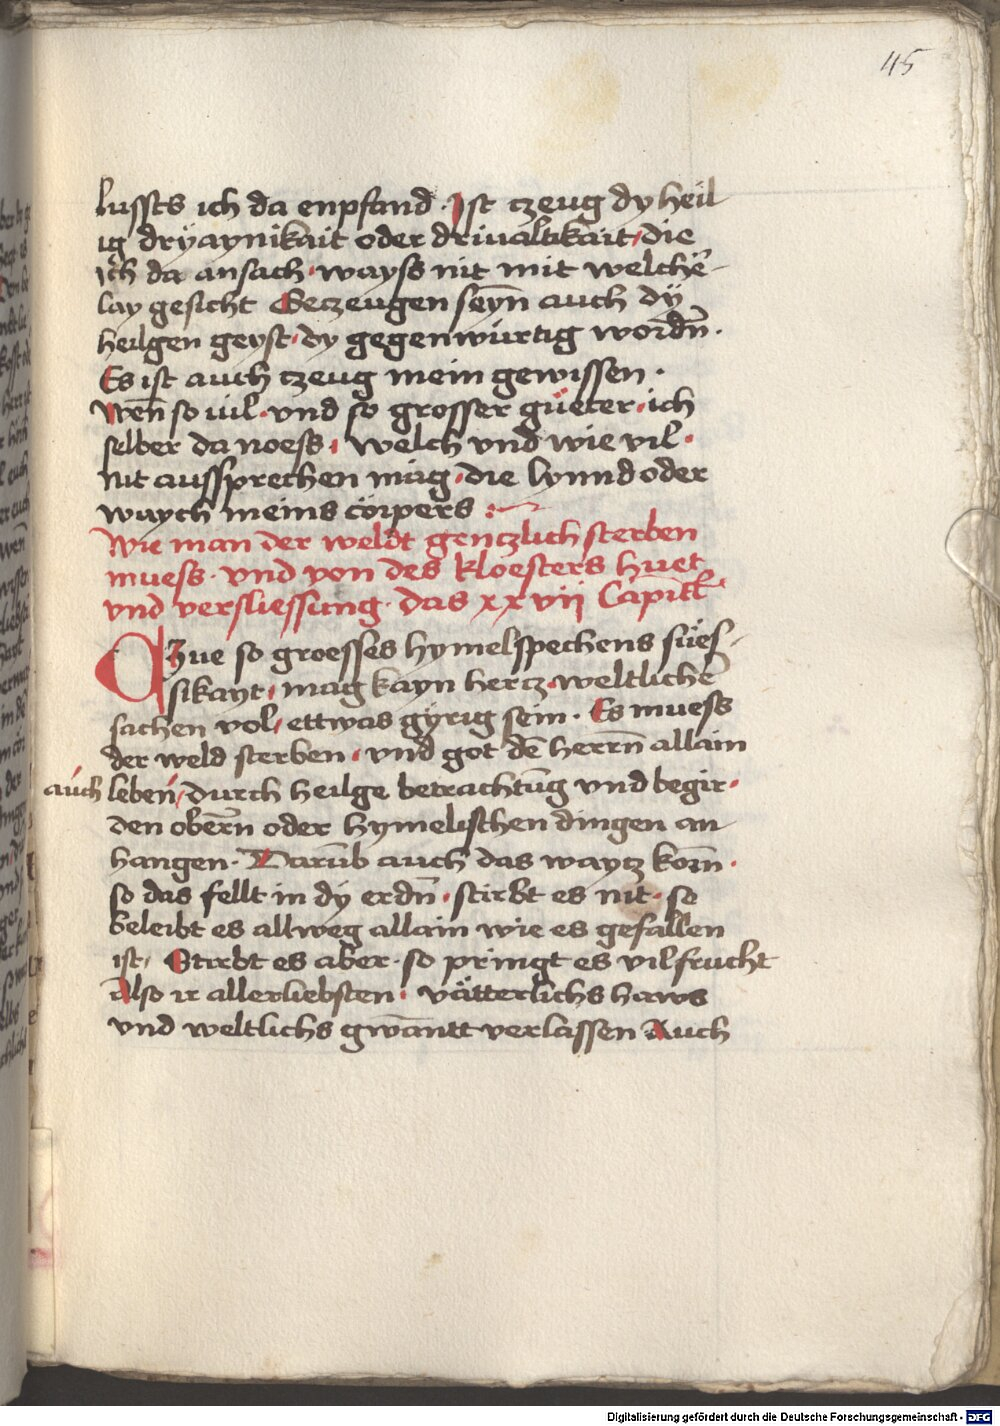 45
lussts ich da enpfand · Ist czeug dy heil
ig dryaynikait oder driualtikait, die
ich da ansach · wayss nit mit welchē-
lay gesicht Geczeugen seyn̄ auch dÿ
heilgen geyst · dy gegenwurtig wordn̄ ·
Es ist auch czeug mein gewissen ·
Wen̄ so uil · vnd so grosser güeter · ich
selber da noess · welch vnd wie vil ·
nit aussprechen mag · die lynnd oder
waych meins cörpers :~
Wie man der weldt genczlich sterben
muess · vnd von des kloesters huet
vnd versliessung · das xxvij Capittl
Zue so groesses hymelspechens sües-
sikayt, mag kayn hercz weltlicher
sachen vol, ettwas gyrig sein · Es muess
der weld sterben · vnd got dē herrn̄ allain
auch leben, durch heilge betrachtūg vnd begir ·
den obern̄ oder hymelischen dingen an
hangen · Darūb auch das waytz korn̄ ·
so das fellt in dÿ erdn̄ · stirbt es nit · so
beleibt es allweg allain wie es gefallen
ist, Stirbt es aber · so pringt es vil frucht
Also ir allerliebsten · vätterlichs haws
vnd weltlichs gwanntt verlassen Auch
Digitalisierung gefördert durch die Deutsche Forschungsgemeinschaft - DFG